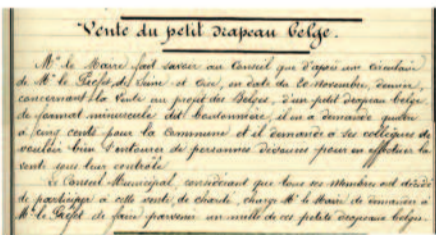 Vente du petit drapeau belge.
Mr le Maire fait savoir au Conseil que d'après une circulaire
de Mr le Préfet de Seine et Oise, en date du 20 novembre, dernier,
concernant la Vente au profit des Belges, d'un petit drapeau belge
de format minuscule dit boutonnière, il en a demandé quatre
à cinq cents pour la Commune et il demande à ses collègues de
vouloir bien s'entourer de personnes dévouées pour en effectuer la
vente sous leur contrôle
Le Conseil Municipal, considérant que tous ses membres ont décidé
de participer à cette vente de charité, charge Mr le Maire de demander à
Mr le Préfet de faire parvenir un mille de ces petits drapeaux belges.